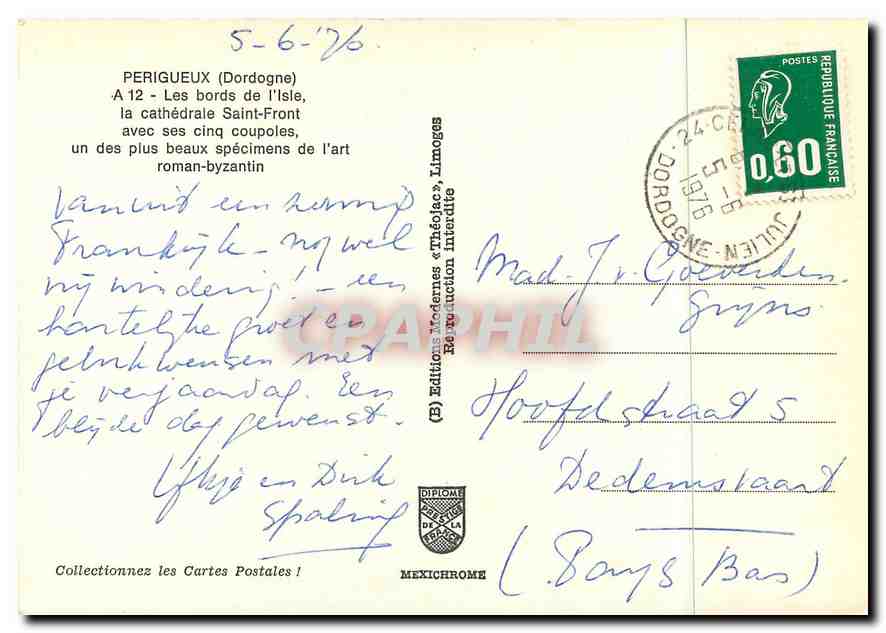 5-6-'76.
PERIGUEUX (Dordogne)
A 12 - Les bords de l'Isle,
la cathédrale Saint-Front
avec ses cinq coupoles,
un des plus beaux spécimens de l'art
roman-byzantin
Vanuit een zonnig
Frankrijk - nog wel
winderig! - een
hartelijke groet en
gelukwensen met
je verjaardag. Een
blijde dag gewenst.
en Dirk
Spaling
Collectionnez les Cartes Postales !
(B) Editions Modernes «Théojac», Limoges
Reproduction Interdite
DIPLOME
PRESTIGE
DE LA
FRANCE
MEXICHROME
POSTES
REPUBLIQUE FRANÇAISE
0,60
24-
JULIEN
5 - 6
1976
DORDOGNE
Mad. J. v. Goeverden
Grijns
Hoofdstraat 5
Dedemsvaart
(Pays Bas)
CPAPHIL